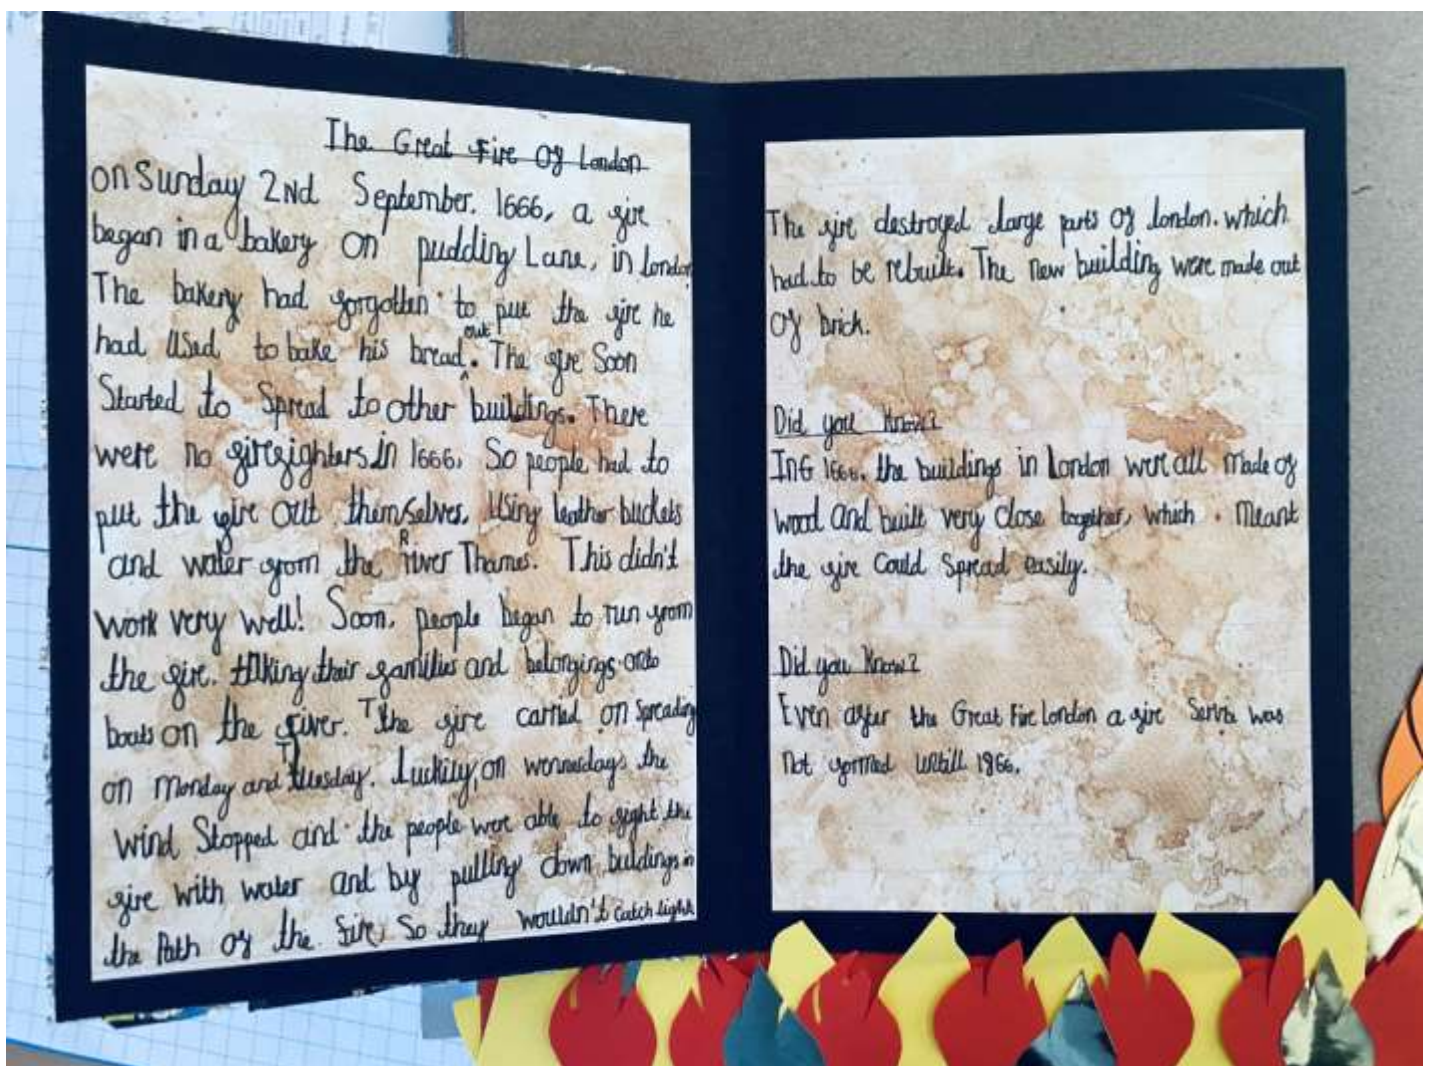 The Great Fire Of London
on Sunday 2Nd September. 1666, a fire
began in a bakery on pudding Lane, in London
The bakery had forgotten to put the fire he
had Used to bake his bread out. The fire Soon
Started to Spread to other buildings. There
were no firefighters in 1666, So people had to
put the fire out themselves, Using leather buckets
and water from the River Thames. This didn't
work very well! Soon, people began to run from
the fire. taking their families and belongings onto
boats on the river. The fire carried on Spreading
on Monday and Tuesday. Luckily, on wennesdays the
wind Stopped and the people were able to fight the
fire with water and by pulling down buildings in
the Path of the fire, So they wouldn't catch light
The fire destroyed large parts of london. which
had to be rebuilt. The new building were made out
Of brick.
Did you Know?
InG 1666. the buildings in London were all Made of
wood and built very close together, which Meant
the fire Could Spread easily.
Did you Know?
Even after the Great Fire London a fire Servie was
Not formed untill 1866.